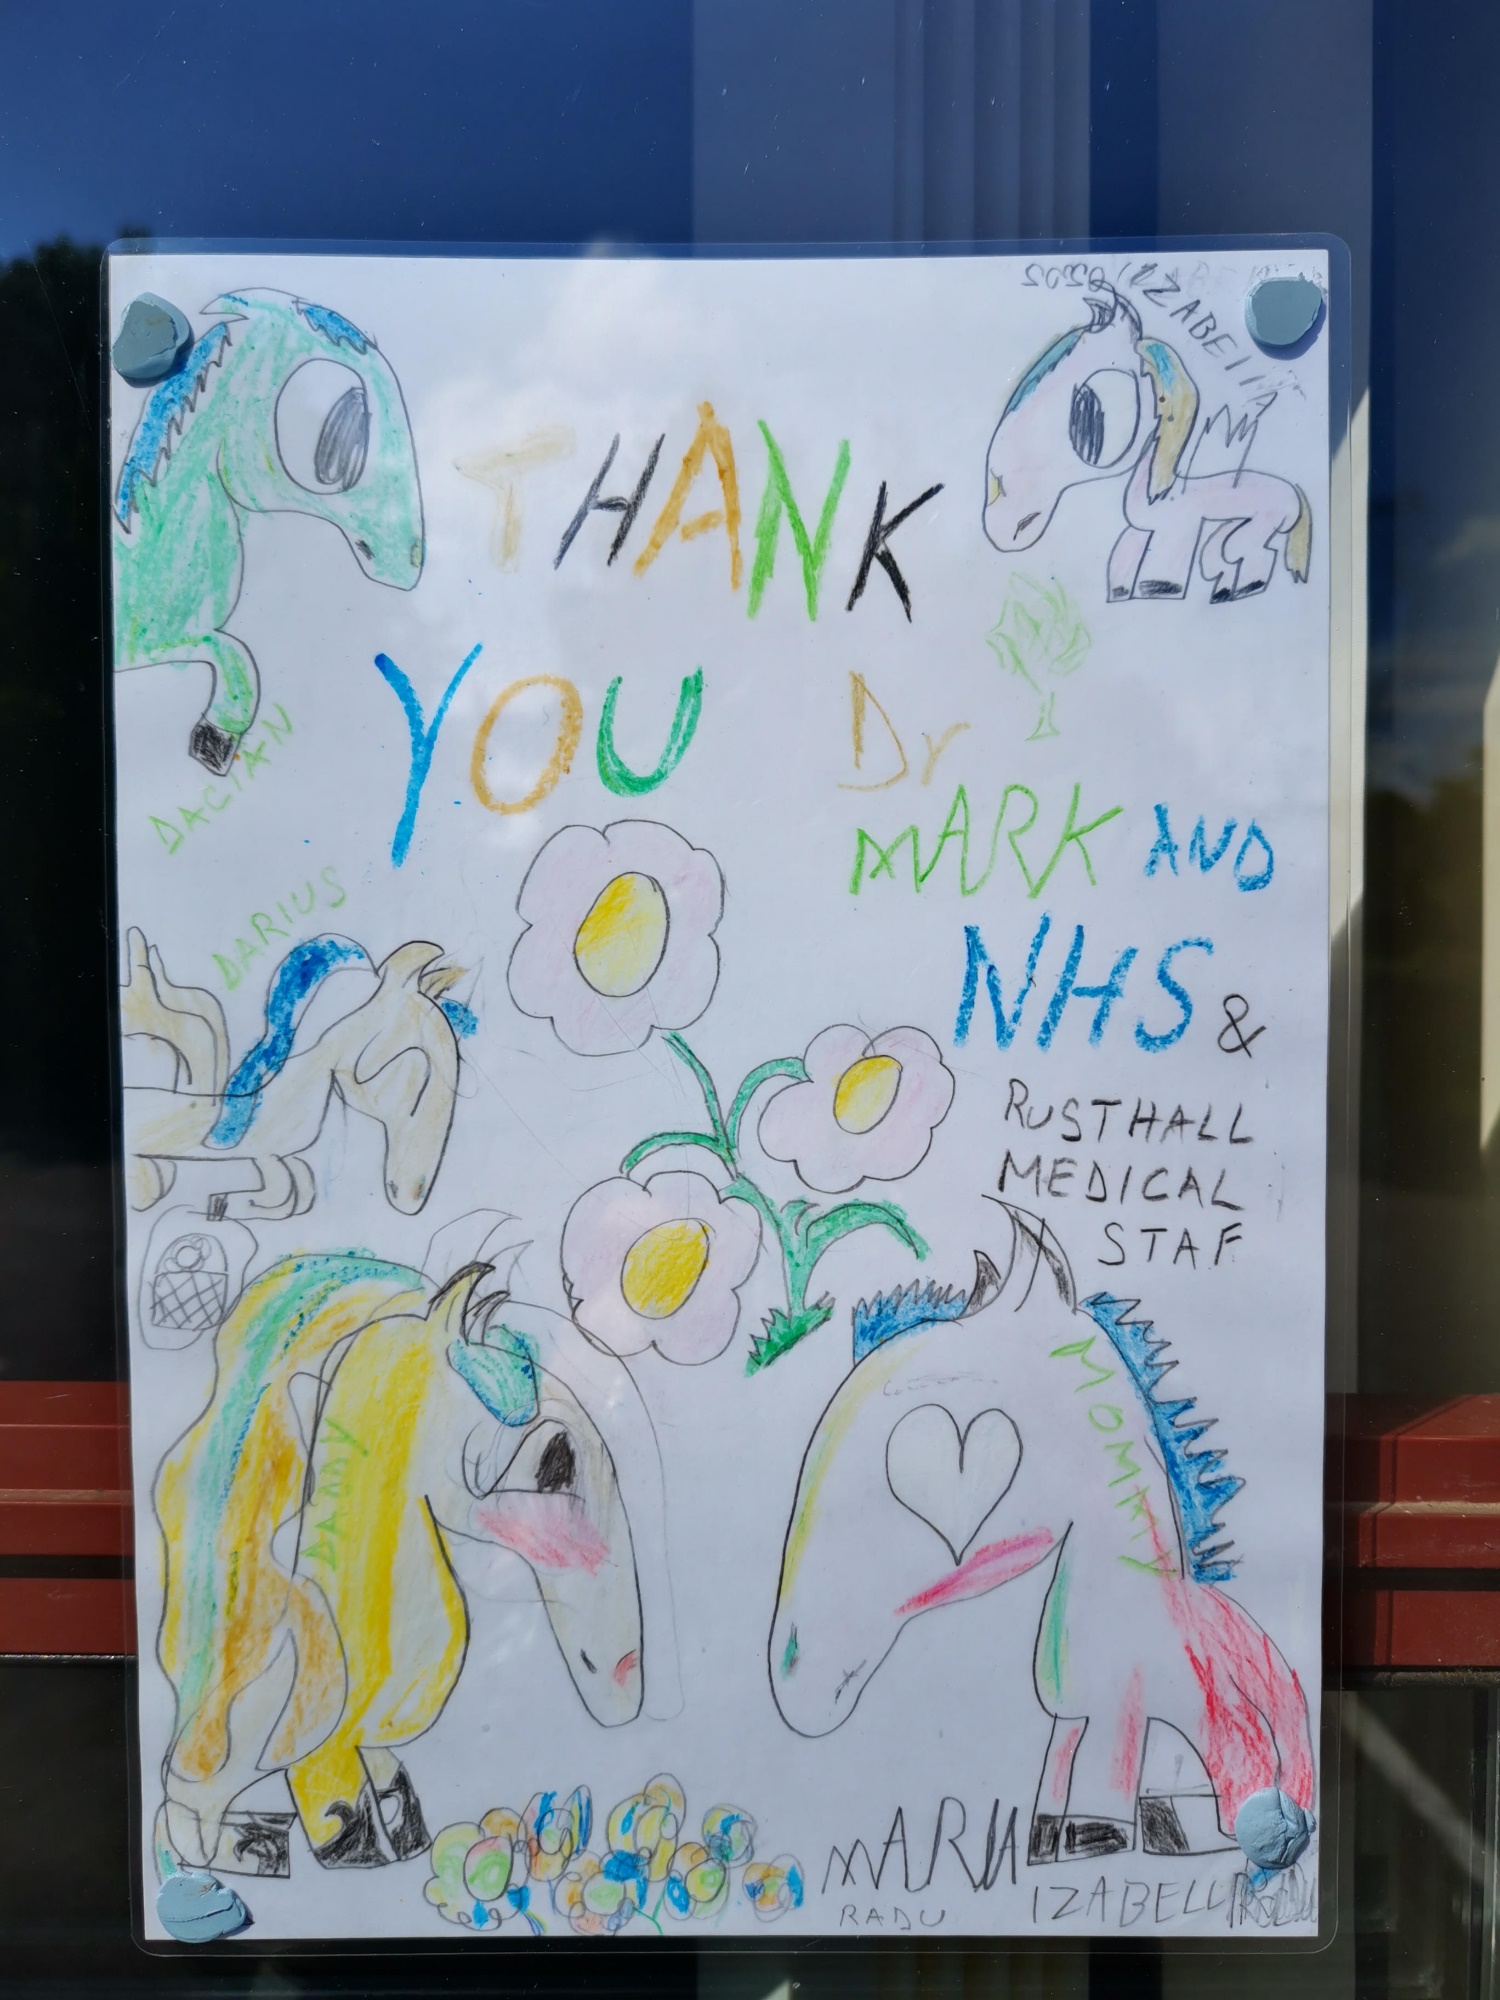 IZABELL
THANK
YOU Dr
MARK AND
NHS &
RUSTHALL
MEDICAL
STAF
DACIAN
DARIUS
DADDY
MOMMY
MARIA
RADU
IZABELL